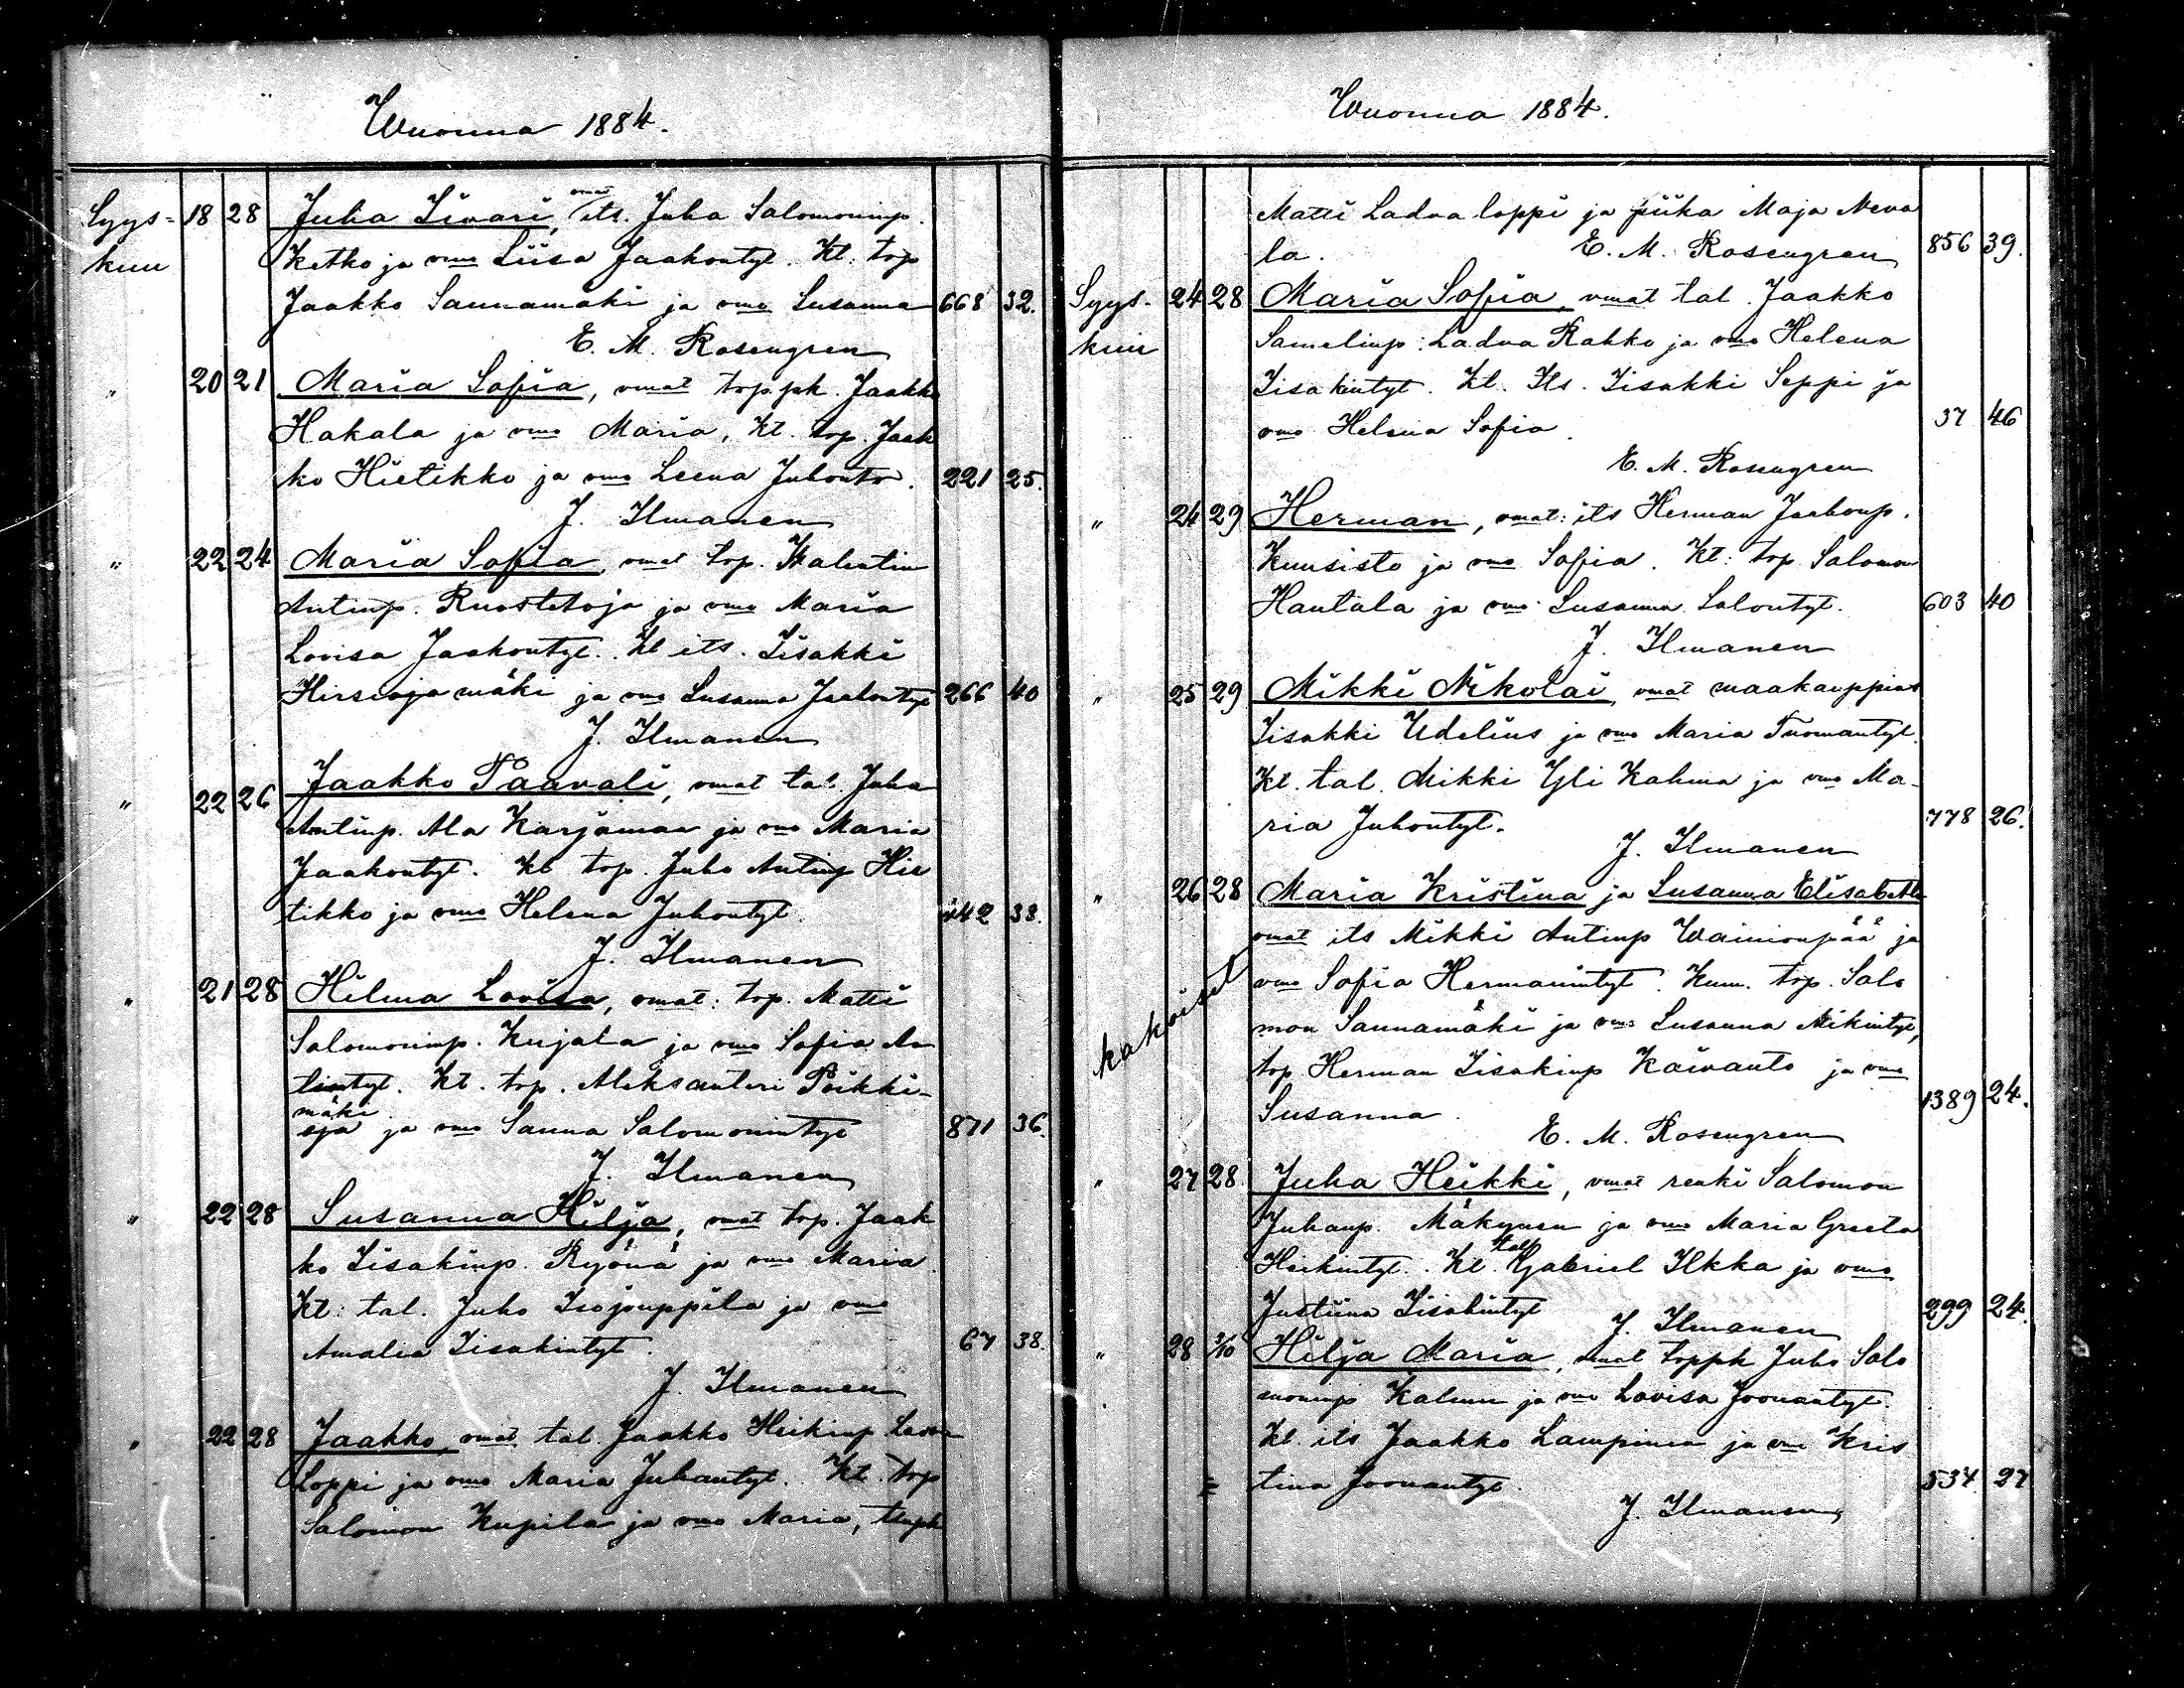 Wuonna 1884.
Syys- 18 28 Juha Iivari, omat its. Juha Salomoninp.
kuu Ketko ja vmo Liisa Jaakontyt. Kt. top
Jaakko Saunamäki ja vmo Susanna 668 32.
E. M. Rosengren
" 20 21 Maria Sofia, vmat top.pk. Jaakk
Hakala ja vmo Maria, Kt. top. Jaak
ko Hietikko ja vmo Leena Juhont. 221 25.
J. Ilmanen
" 22 24 Maria Sofia, vmat top. Walentin
Antinp. Ruostetoja ja vmo Maria
Lovisa Jaakontyt. Kt its. Iisakki
Hirsiojamäki ja vmo Susanna Jaakontyt 266 40
J. Ilmanen
" 22 26 Jaakko Taavali, vmat tal. Juha
Antinp. Ala Karjamaa ja vmo Maria
Jaakontyt. Kt top. Juho Antinp Hie
tikko ja vmo Helena Juhontyt. 242 38.
J. Ilmanen
" 21 28 Hilma Lovisa, vmat: top. Matti
Salomoninp. Kujala ja vmo Sofia An
tintyt. Kt. top. Aleksanteri Poikki-
mäki
oja ja vmo Sanna Salomonintyt 871 36.
J. Ilmanen
" 22 28 Susanna Hilja, vmat top. Jaak
ko Iisakinp. Ryönä ja vmo Maria.
Kt: tal. Juho Isojouppila ja vmo
Amalia Iisakintyt. 67 38.
J. Ilmanen
" 22 28 Jaakko, vmat tal. Jaakko Heikinp
Loppi ja vmo Maria Juhantyt. Kt. top
Salomon Kupila ja vmo Maria,
Wuonna 1884.
Matti Ladvaloppi ja piika Maja Neva
la. E. M. Rosengren 856 39.
Syys- 24 28 Maria Sofia, vmat tal. Jaakko
kuu Samelinp: Ladva Rahko ja vmo Helena
Iisakintyt. Kt. Its. Iisakki Seppi ja
vmo Helena Sofia. 37 46
E. M. Rosengren
" 24 29 Herman, vmat: its Herman Jaakonp.
Kuusisto ja vmo Sofia. Kt: top Salomon
Hautala ja vmo Susanna Salontyt. 603 40
J. Ilmanen
" 25 29 Mikki Nikolai, vmat maakauppias
Iisakki Udelius ja vmo Maria Tuomantyt.
Kt. tal. Mikki Yli Kahma ja vmo Ma-
ria Juhontyt. 778 26.
J. Ilmanen
" 26 28 Maria Kristina ja Susanna Elisabeth
vmat its Mikki Antinp Wainionpää ja
kaksoiset vmo Sofia Hermanintyt. Kum. top. Salo
mon Saunamäki ja vmo Susanna Mikintyt,
top Herman Iisakinp Kaivanto ja vmo
Susanna. 1389 24.
E. M. Rosengren
" 27 28. Juha Heikki, vmat renki Salomon
Juhanp. Mäkynen ja vmo Maria Greeta
Heikintyt. Kt. tal. Gabriel Ilkka ja vmo
Justiina Iisakintyt 299 24.
J. Ilmanen
" 28 3/10 Hilja Maria, vmat toppk Juho Salo
moninp Kalmu ja vmo Lovisa Joonantyt.
Kt. its Jaakko Lampinen ja vmo Kris
= tina Joonantyt. 534 27
J. Ilmanen